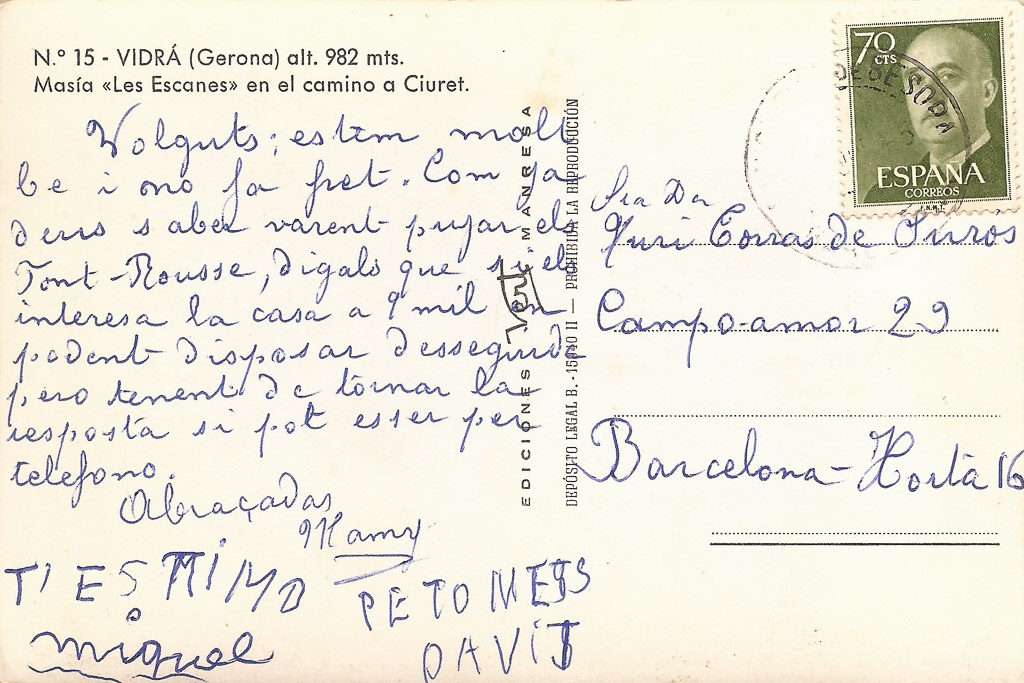 N.º 15 - VIDRÁ (Gerona) alt. 982 mts.
Masía «Les Escanes» en el camino a Ciuret.
Volguts; estem molt
be i no fa fret. Com ja
deus saber varent pujar els
Font-Rousse, digals que si els
interesa la casa a 9 mil en
podent disposar desseguida
pero tenent de tornar la
resposta si pot esser per
telefono.
Abraçadas
Mamy
T'ESTIMO
miquel
PETONETS
DAVIT
EDICIONES Vert MANRESA
DEPÓSITO LEGAL B. - 15040 II — PROHIBIDA LA REPRODUCCIÓN
70 CTS
ESPAÑA
CORREOS
F.N.M.T.
DE BESORA
Sra Dª
Nuri Corras de Jurós
Campo-amor 29
Barcelona-Horta 16